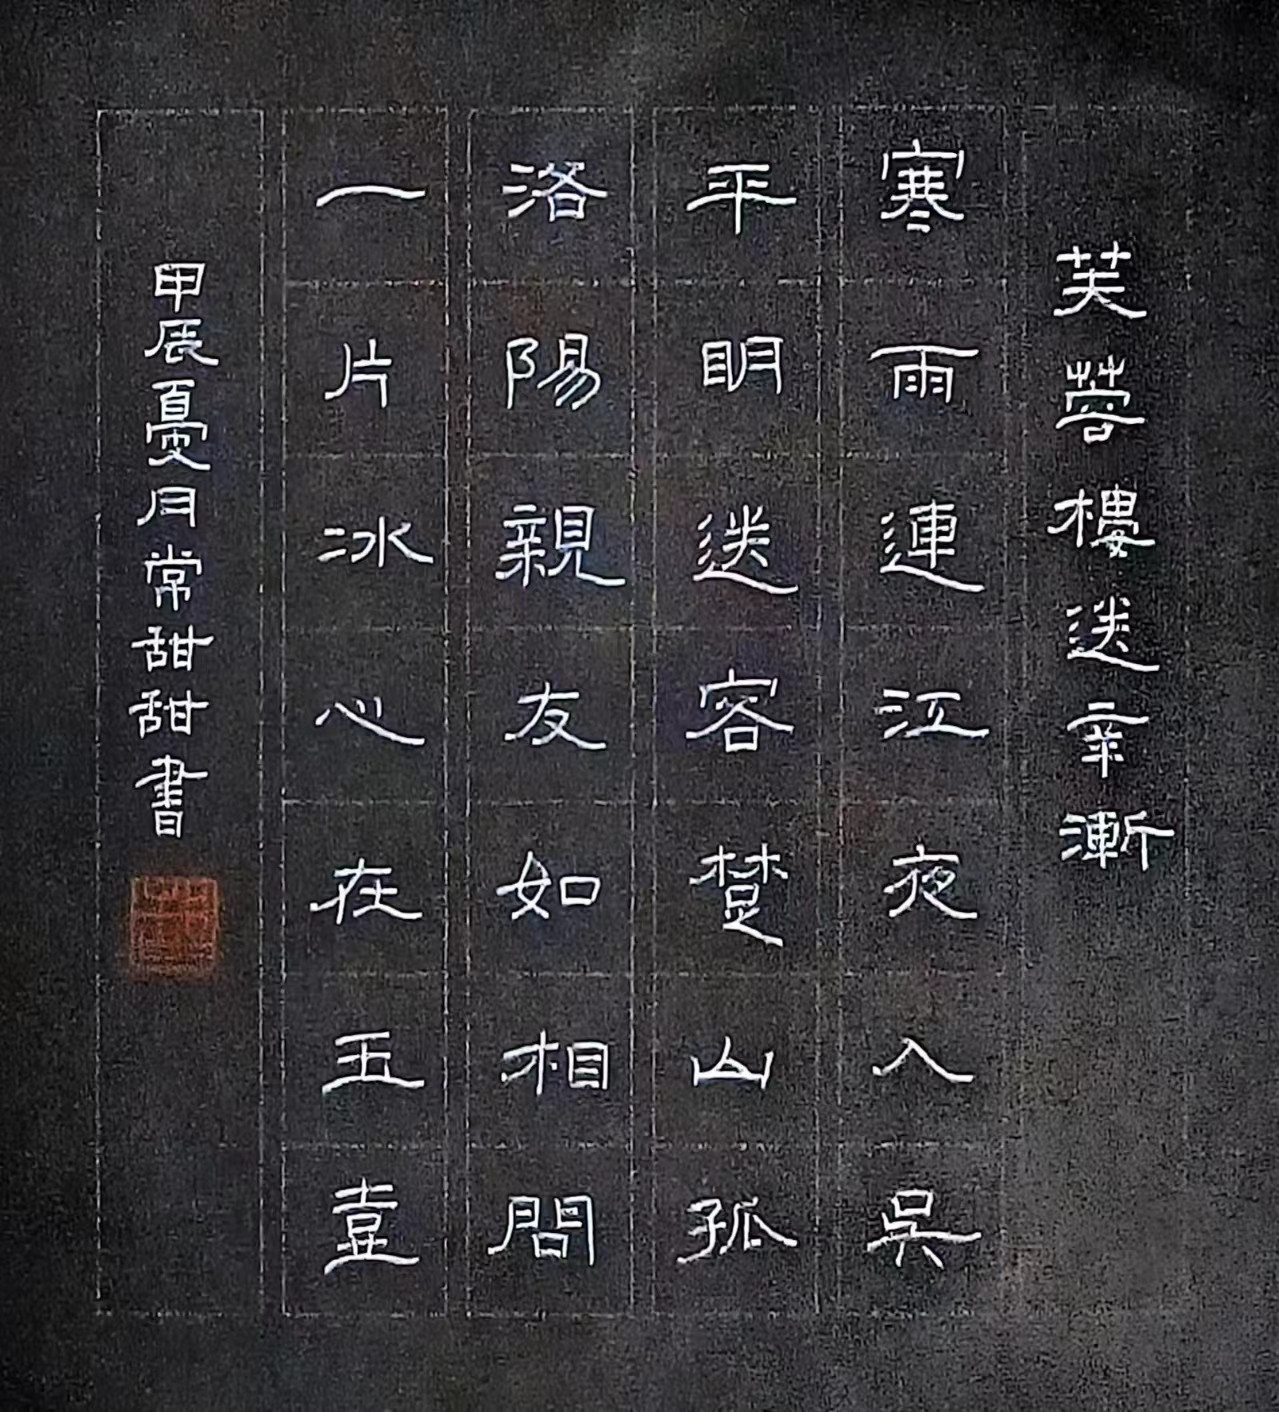 芙蓉樓送辛漸
寒雨連江夜入吳
平明送客楚山孤
洛陽親友如相問
一片冰心在玉壺
甲辰夏月常甜甜書